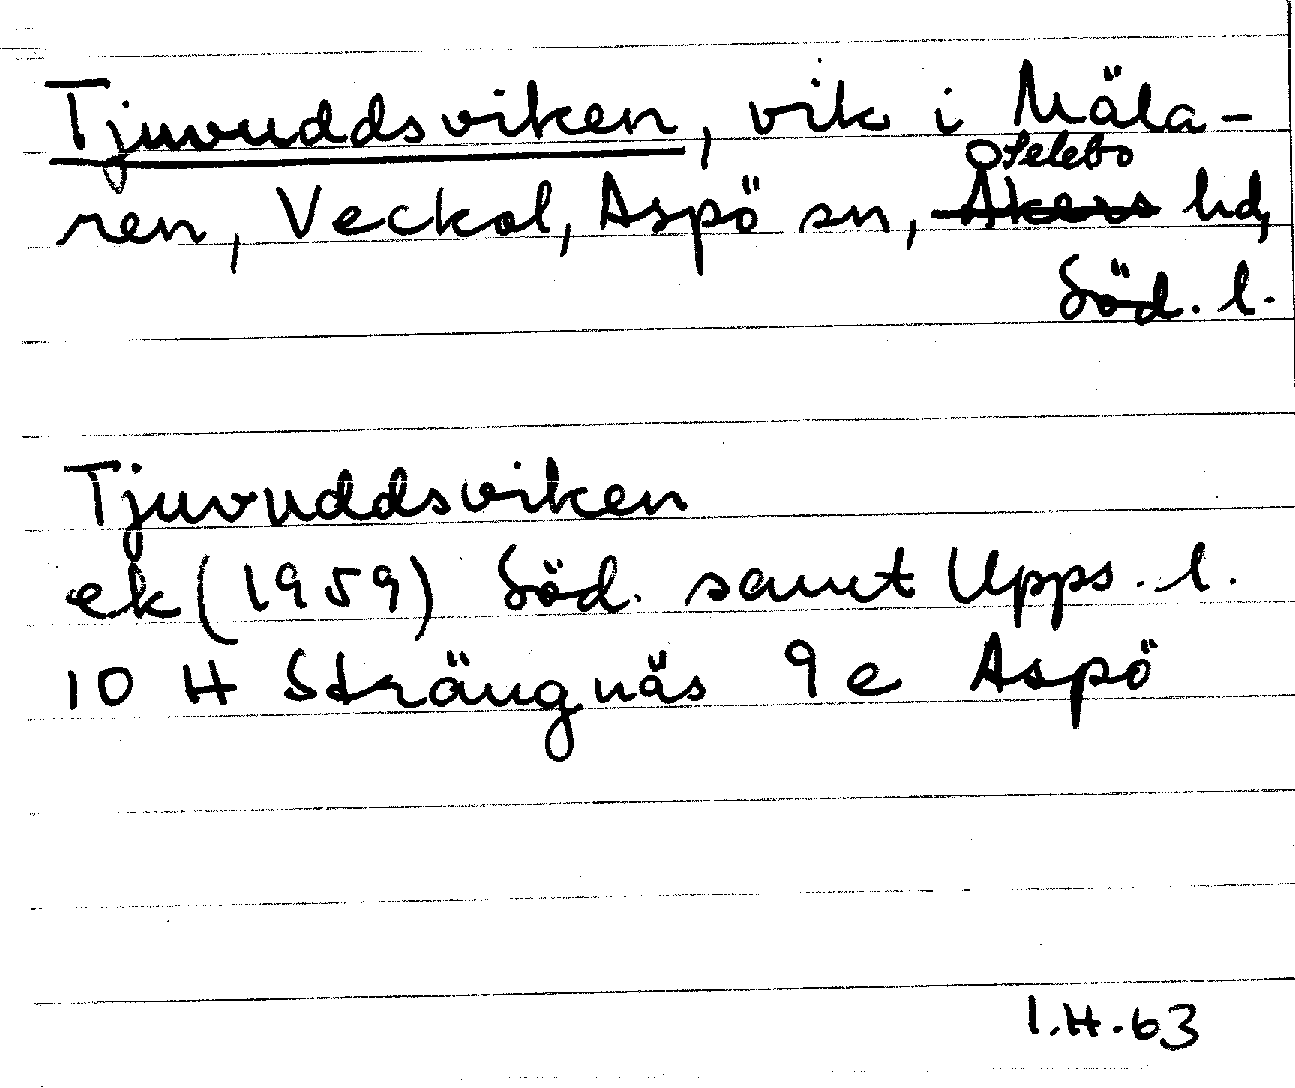 Tjuvuddsviken, vik i Mäla-
ren, Veckol, Aspö sn, Åkers Selebo hd,
Söd. l.
Tjuvuddsviken
ek (1959) Söd. samt Upps. l.
10 H Strängnäs 9e Aspö
I.H.63